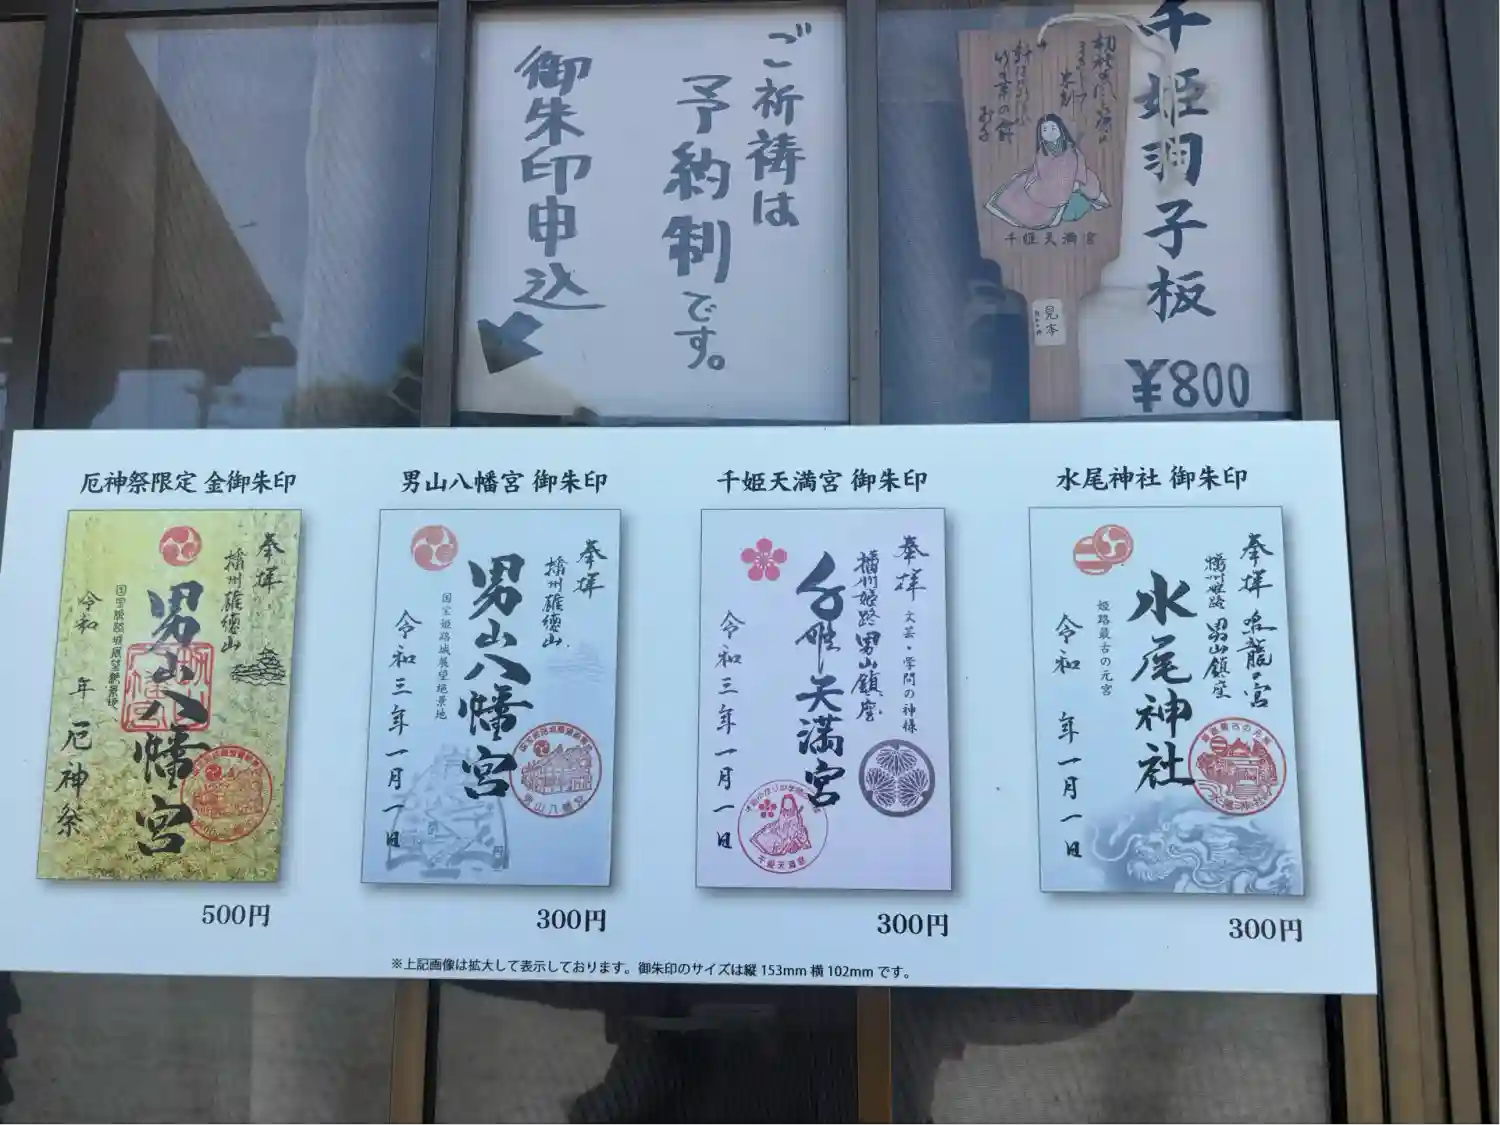 ご祈祷は
予約制です。
御朱印申込
千姫羽子板
¥800
千姫天満宮
見本
厄神祭限定 金御朱印
奉拝
播州雄徳山
男山八幡宮
令和 年 厄神祭
500円
男山八幡宮 御朱印
奉拝
播州雄徳山
男山八幡宮
国宝姫路城展望絶景地
令和三年一月一日
男山八幡宮
300円
千姫天満宮 御朱印
奉拝
文芸・学問の神様
播州姫路 男山鎮座
千姫天満宮
令和三年一月一日
千姫天満宮
300円
水尾神社 御朱印
奉拝
播州姫路 男山鎮座
水尾神社
姫路最古の元宮
令和 年一月一日
300円
※上記画像は拡大して表示しております。御朱印のサイズは縦 153mm 横 102mm です。